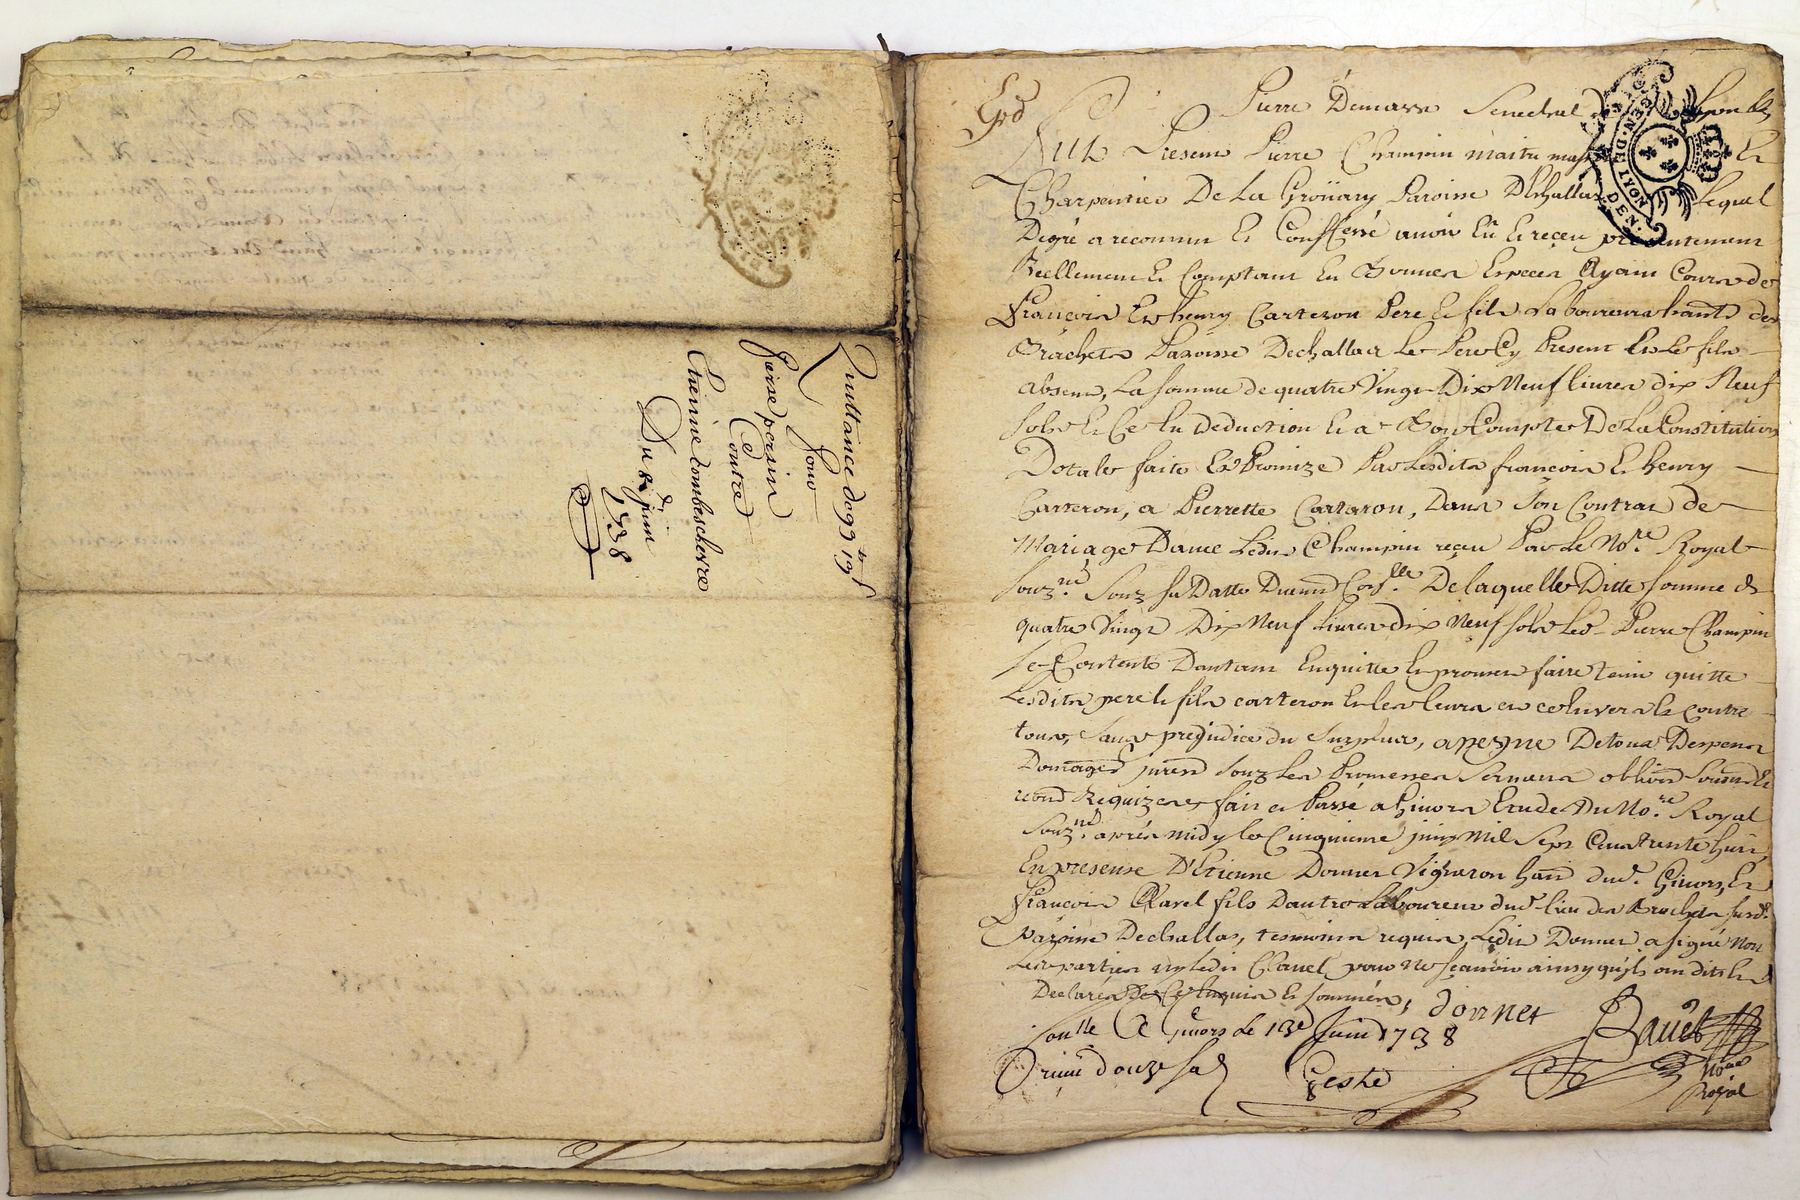 Quittance de 99ₗ 19ˢ
pour
Pierre persin
Contre
Etienne combeschevre
Du 8 juin
1738
Expd
Pierre Demarre Senechal
Fut Present Pierre Champin maitre Et
Charpentier De La Groüary Paroisse Dechallas Lequel
Degré a reconnu Et Confessé avoir Eu Et reçeu presentement
Reellement Et Comptant En Bonnes Especes Ayant Cours de
François Et henry Carteron Pere Et fils Laboureurs hants des
Brachets Paroisse Dechallas Le Pere Cy Present Et Le fils
absent, La somme de quatre Vingt Dix Neuf livres dix Neuf
sols Et Ce En Deduction Et a Bon Compte De La Constitution
Dotale faite Et Promize Par Lesdits françois Et henry
Carteron, a Pierrette Carteron, Dans Son Contrat de
Mariage Davec Ledit Champin reçeu Par Le No.re Royal
souz.né Souz sa Datte Duement Con.lle De laquelle Ditte somme de
quatre Vingt Dix Neuf Livres dix Neuf sols Led. Pierre Champin
se Contente Dautant Enquitte Et promet faire tenir quitte
Lesdits pere Et fils carteron Et Les leurs en ce Envers Et Contre
tous, sans prejudice du Surplus, apeyne De tous Despens
Domages jnrest souz Les Promesses Serments obligãons soumõns Et
renõns Requizes fait et Passé a Givors Etude Du No.re Royal
Souz.né aprés midy Le Cinquieme juin Mil Sept Cent trente huit
En presense D'Etienne Donnet Vigneron hant dud. Givors, Et
François Clavel fils Dautre Laboureur dud. lieu des Brachets susd.
Paroisse Dechallas, tesmoins requis Ledit Donnet a signé Non
Les parties ny Ledit Clavel pour ne sçavoir ainsy quils ont dits Et
Declarés De Ce Enquis Et sommés,
donnet
Con.lle A Givors le 13e Juin 1738
Reçu douze sols
Geste
Bavet
No.re
Royal
GEN. DE LYON
DEN.